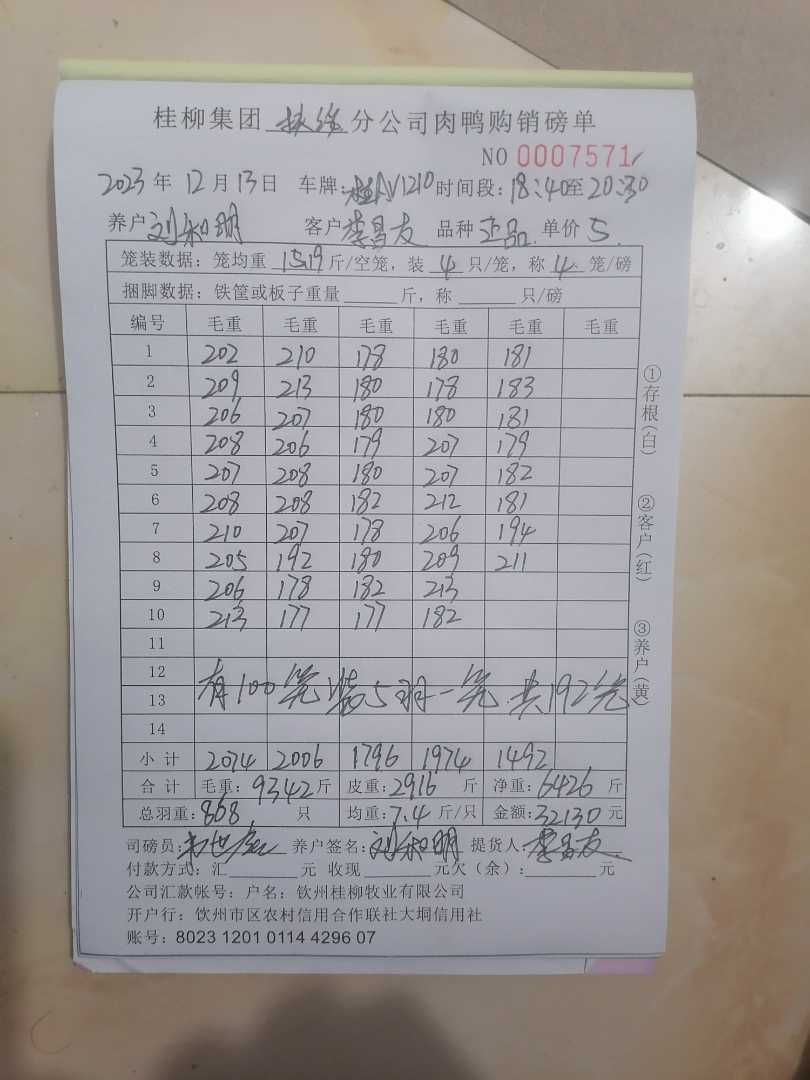 桂柳集团 扶绥 分公司肉鸭购销磅单
NO 0007571
2023年12月13日 车牌:桂AV1210 时间段:18:40至20:30
养户 刘和明 客户 李昌友 品种 正品 单价 5
笼装数据:笼均重 15.19 斤/空笼,装 4 只/笼,称 4 笼/磅
捆脚数据:铁筐或板子重量 斤,称 只/磅
编号 毛重 毛重 毛重 毛重 毛重 毛重
1 202 210 178 180 181
2 209 213 180 178 183
3 206 207 180 180 181
4 208 206 179 207 179
5 207 208 180 207 182
6 208 208 182 212 181
7 210 207 178 206 194
8 205 192 180 209 211
9 206 178 182 213
10 213 177 177 182
11
12
有100笼装5羽一笼.共192笼
13
14
小计 2074 2006 1796 1974 1492
合计 毛重:9342斤 皮重:2916斤 净重:6426斤
总羽重:868只 均重:7.4斤/只 金额:32130元
司磅员: 养户签名:刘和明 提货人:李昌友
付款方式:汇 元 收现 元欠(余): 元
公司汇款帐号:户名:钦州桂柳牧业有限公司
开户行:钦州市区农村信用合作联社大垌信用社
账号:8023 1201 0114 4296 07
①存根(白)
②客户(红)
③养户(黄)